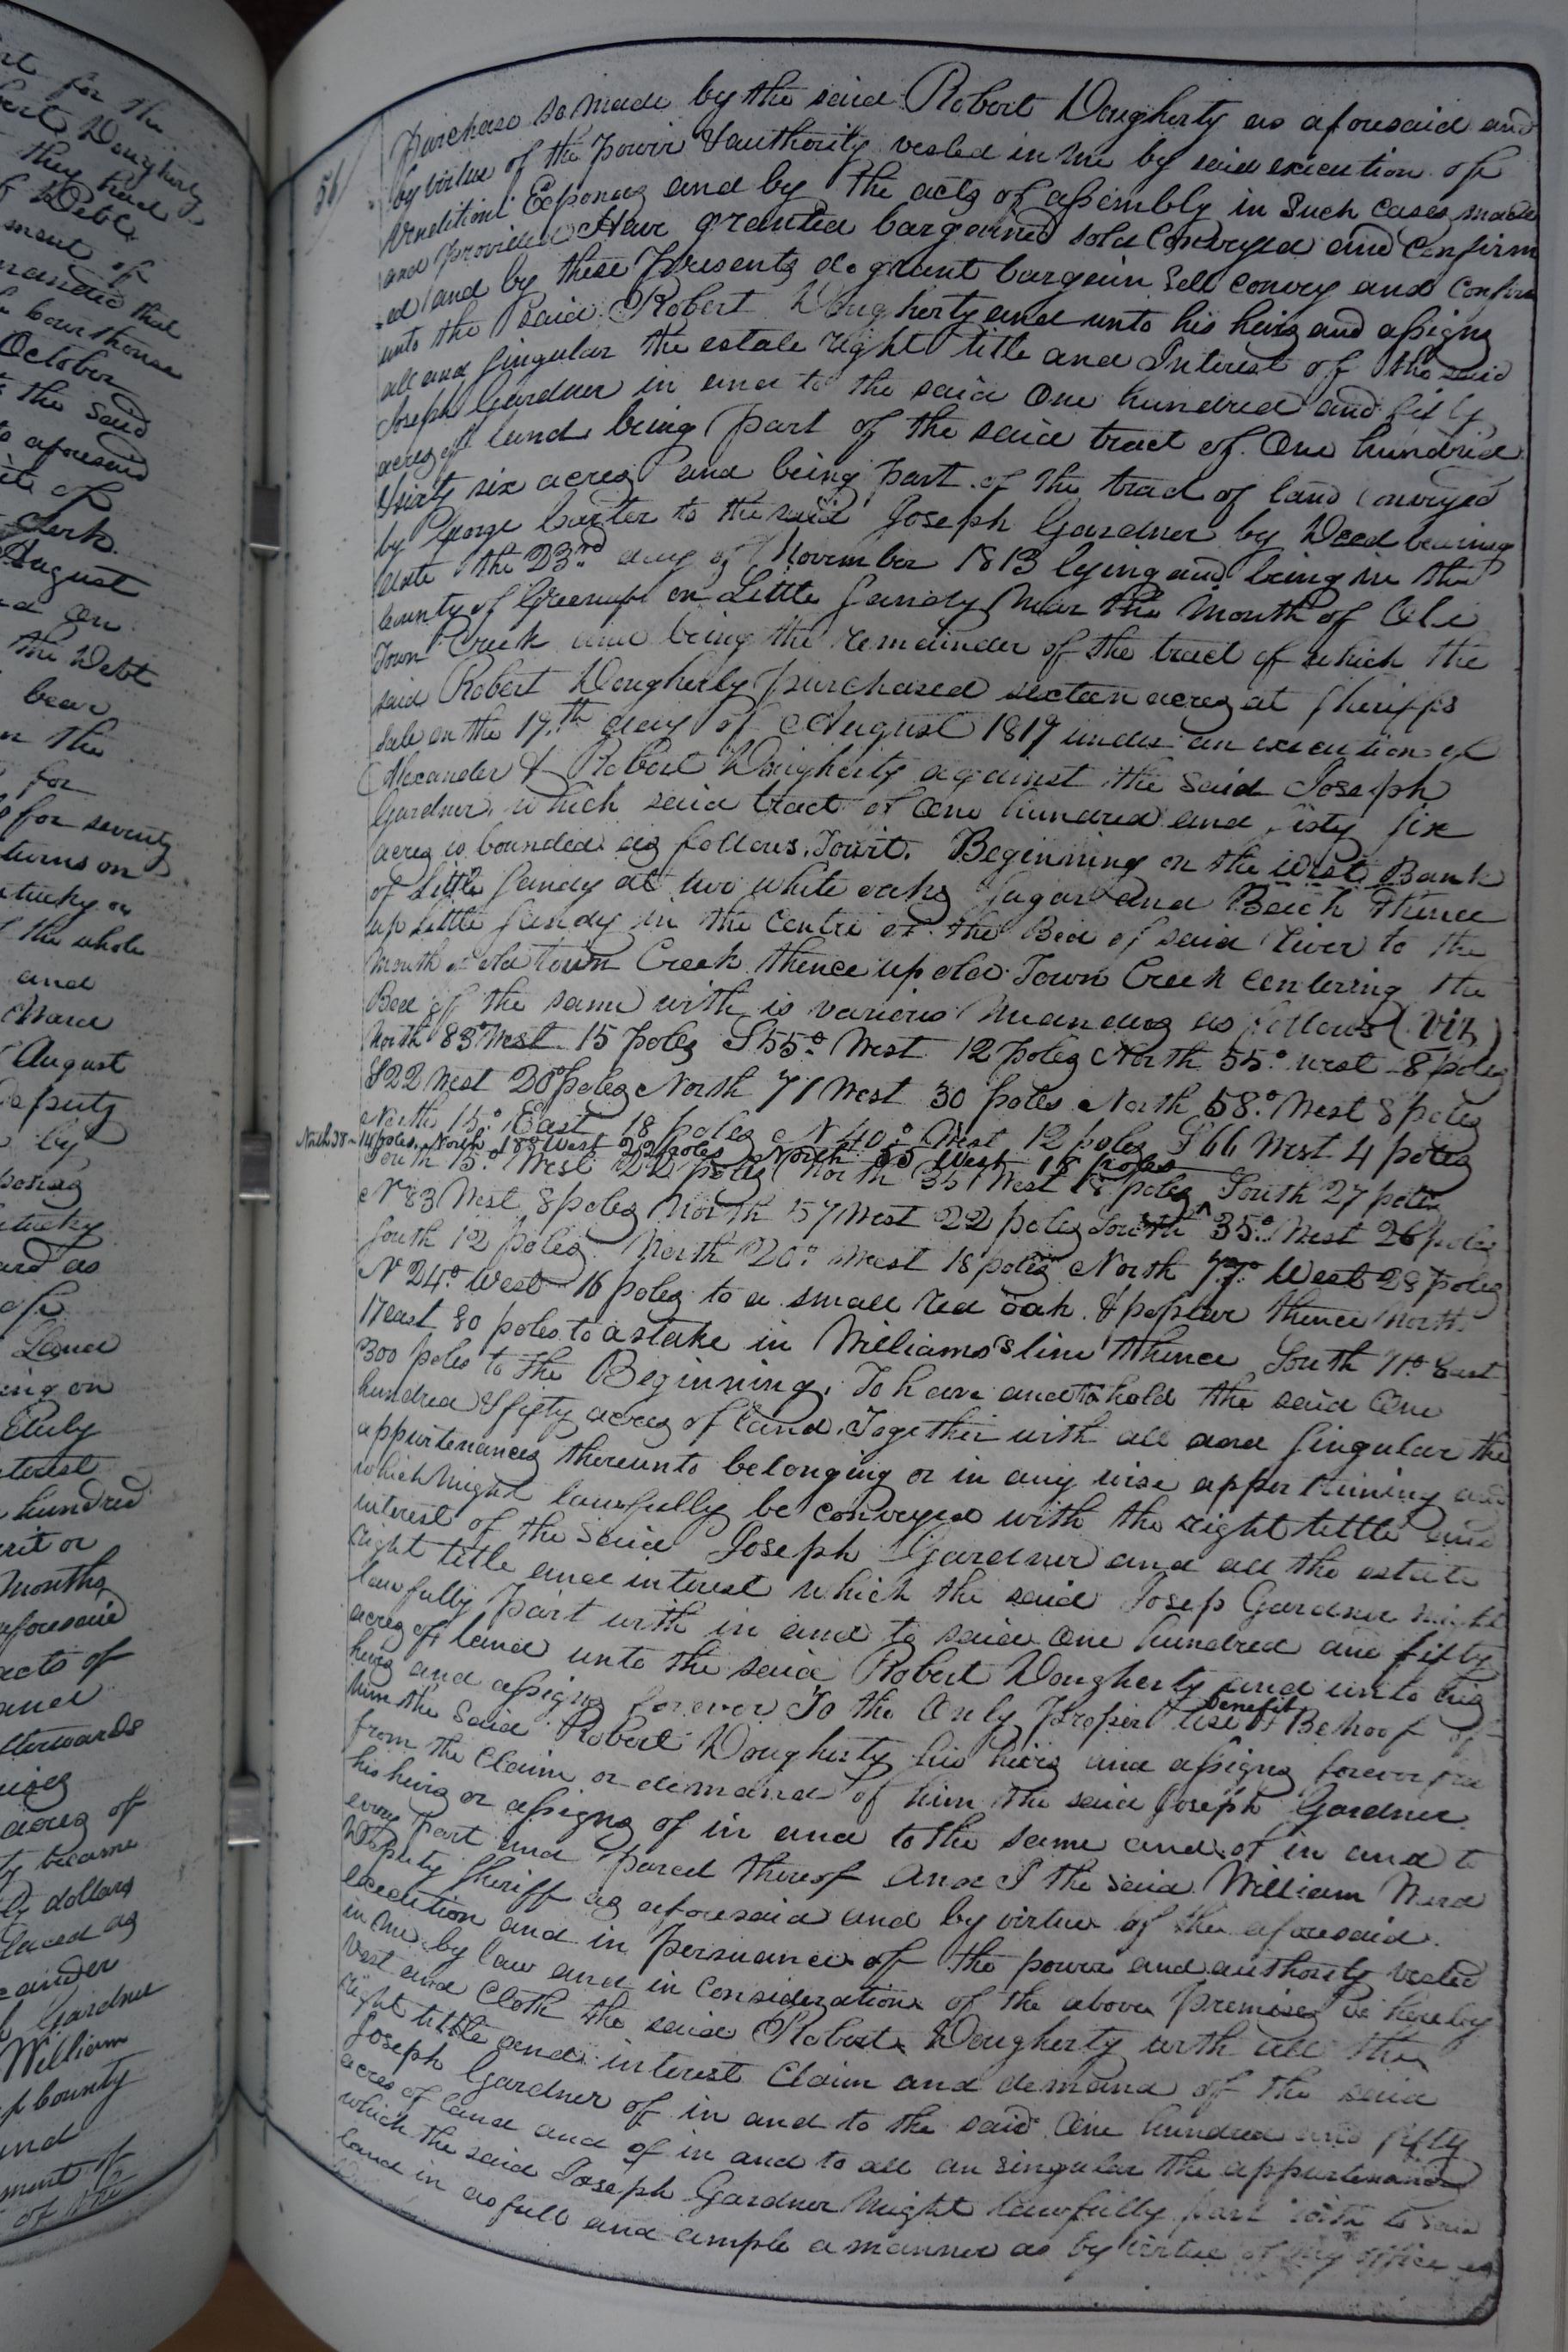 rt for the
bert Dougherty
they had
Debt
ment of
mandie that
courthouse
October
the said
to aforesaid
ite of
Clerk
August
the Debt
bear
on the
for
for seventy
turns on
the whole
and
Ward
August
Deputy
by
ard as
of
Land
ing on
Duly
terest
hundred
rit or
months
aforesaid
acts of
and
fterwards
acres of
ty became
ty dollars
laced as
Gardner
William
p County
and
ment of
of the
56
Purchase so made by the said Robert Dougherty as aforesaid and
by virtue of the Power & authority vested in me by said execution of
Venditioni Exponas and by the acts of assembly in such cases made
and provided Have granted bargained sold Conveyed and Confirm
ed and by these Presents do grant bargain Sell Convey and Confirm
unto the said Robert Dougherty and unto his heirs and assigns
all and singular the estate right title and Interest of the said
Joseph Gardner in and to the said One hundred and fifty
acres of land being part of the said tract of One hundred
Sixty six acres and being part of the tract of land Conveyed
by George Carter to the said Joseph Gardner by Deed bearing
date the 23rd day of November 1813 lying and being in the
County of Greenup on Little Sandy Near the Mouth of Old
Town Creek and being the remainder of the tract of which the
said Robert Dougherty purchased sixteen acres at Sheriffs
Sale on the 19th day of August 1819 under an execution of
Alexander & Robert Dougherty against the said Joseph
Gardner, which said tract of One hundred and sixty six
acres is bounded as follows, Towit. Beginning on the West Bank
of Little Sandy at two white oaks Sugar and Beich thence
up Little Sandy in the Centre of the Bed of said River to the
mouth of old Town Creek thence up old Town Creek centering the
Bed of the same with is various Meanders as follows (Viz)
North 83° West 15 poles S 55° West 12 poles North 55° west 8 poles
S 22 West 20 poles North 71 West 30 poles North 58° West 8 poles
North 15° East 18 poles N 40° West 12 poles S 66 West 4 poles
North 38 - 14 poles, North 188 West 22 poles North 55 West 18 poles
South 15° West 22 poles North 35 West 18 poles ^ South 27 poles
N 83 West 8 poles North 57 West 22 poles South 35° West 26 poles
South 12 poles North 20° West 18 poles North 77° West 28 poles
N 24° West 16 poles to a small red oak & poplar thence North
17 east 80 poles to a stake in Williams's line thence South 71° East
300 poles to the Beginning. To have and to hold the said One
hundred & fifty acres of land. Together with all and singular the
appurtenances thereunto belonging or in any wise appertaining and
which Might lawfully be conveyed with the right tittle and
interest of the said Joseph Gardner and all the estate
right title and interest which the said Josep Gardner might
lawfully part with in and to said One hundred and fifty
acres of land unto the said Robert Dougherty and unto his
heirs and assigns forever To the Only Proper Use benefit & Behoof of
him the said Robert Dougherty his heirs and assigns forever
from the Claim or demand of him the said Joseph Gardner
his heirs or assigns of in and to the same and of in and to
every part and parcel thereof And I the said William Ward
Deputy Sheriff as aforesaid and by virtue of the aforesaid
execution and in Persuance of the power and authority vested
in me by law and in Consideration of the above Premises do hereby
Vest and Cloth the said Robert Dougherty with all the
right tittle and interest Claim and demand of the said
Joseph Gardner of in and to the said One hundred and fifty
acres of land and of in and to all an singular the appurtenances
which the said Joseph Gardner Might lawfully part with to said
land in as full and ample a manner as by virtue of my office